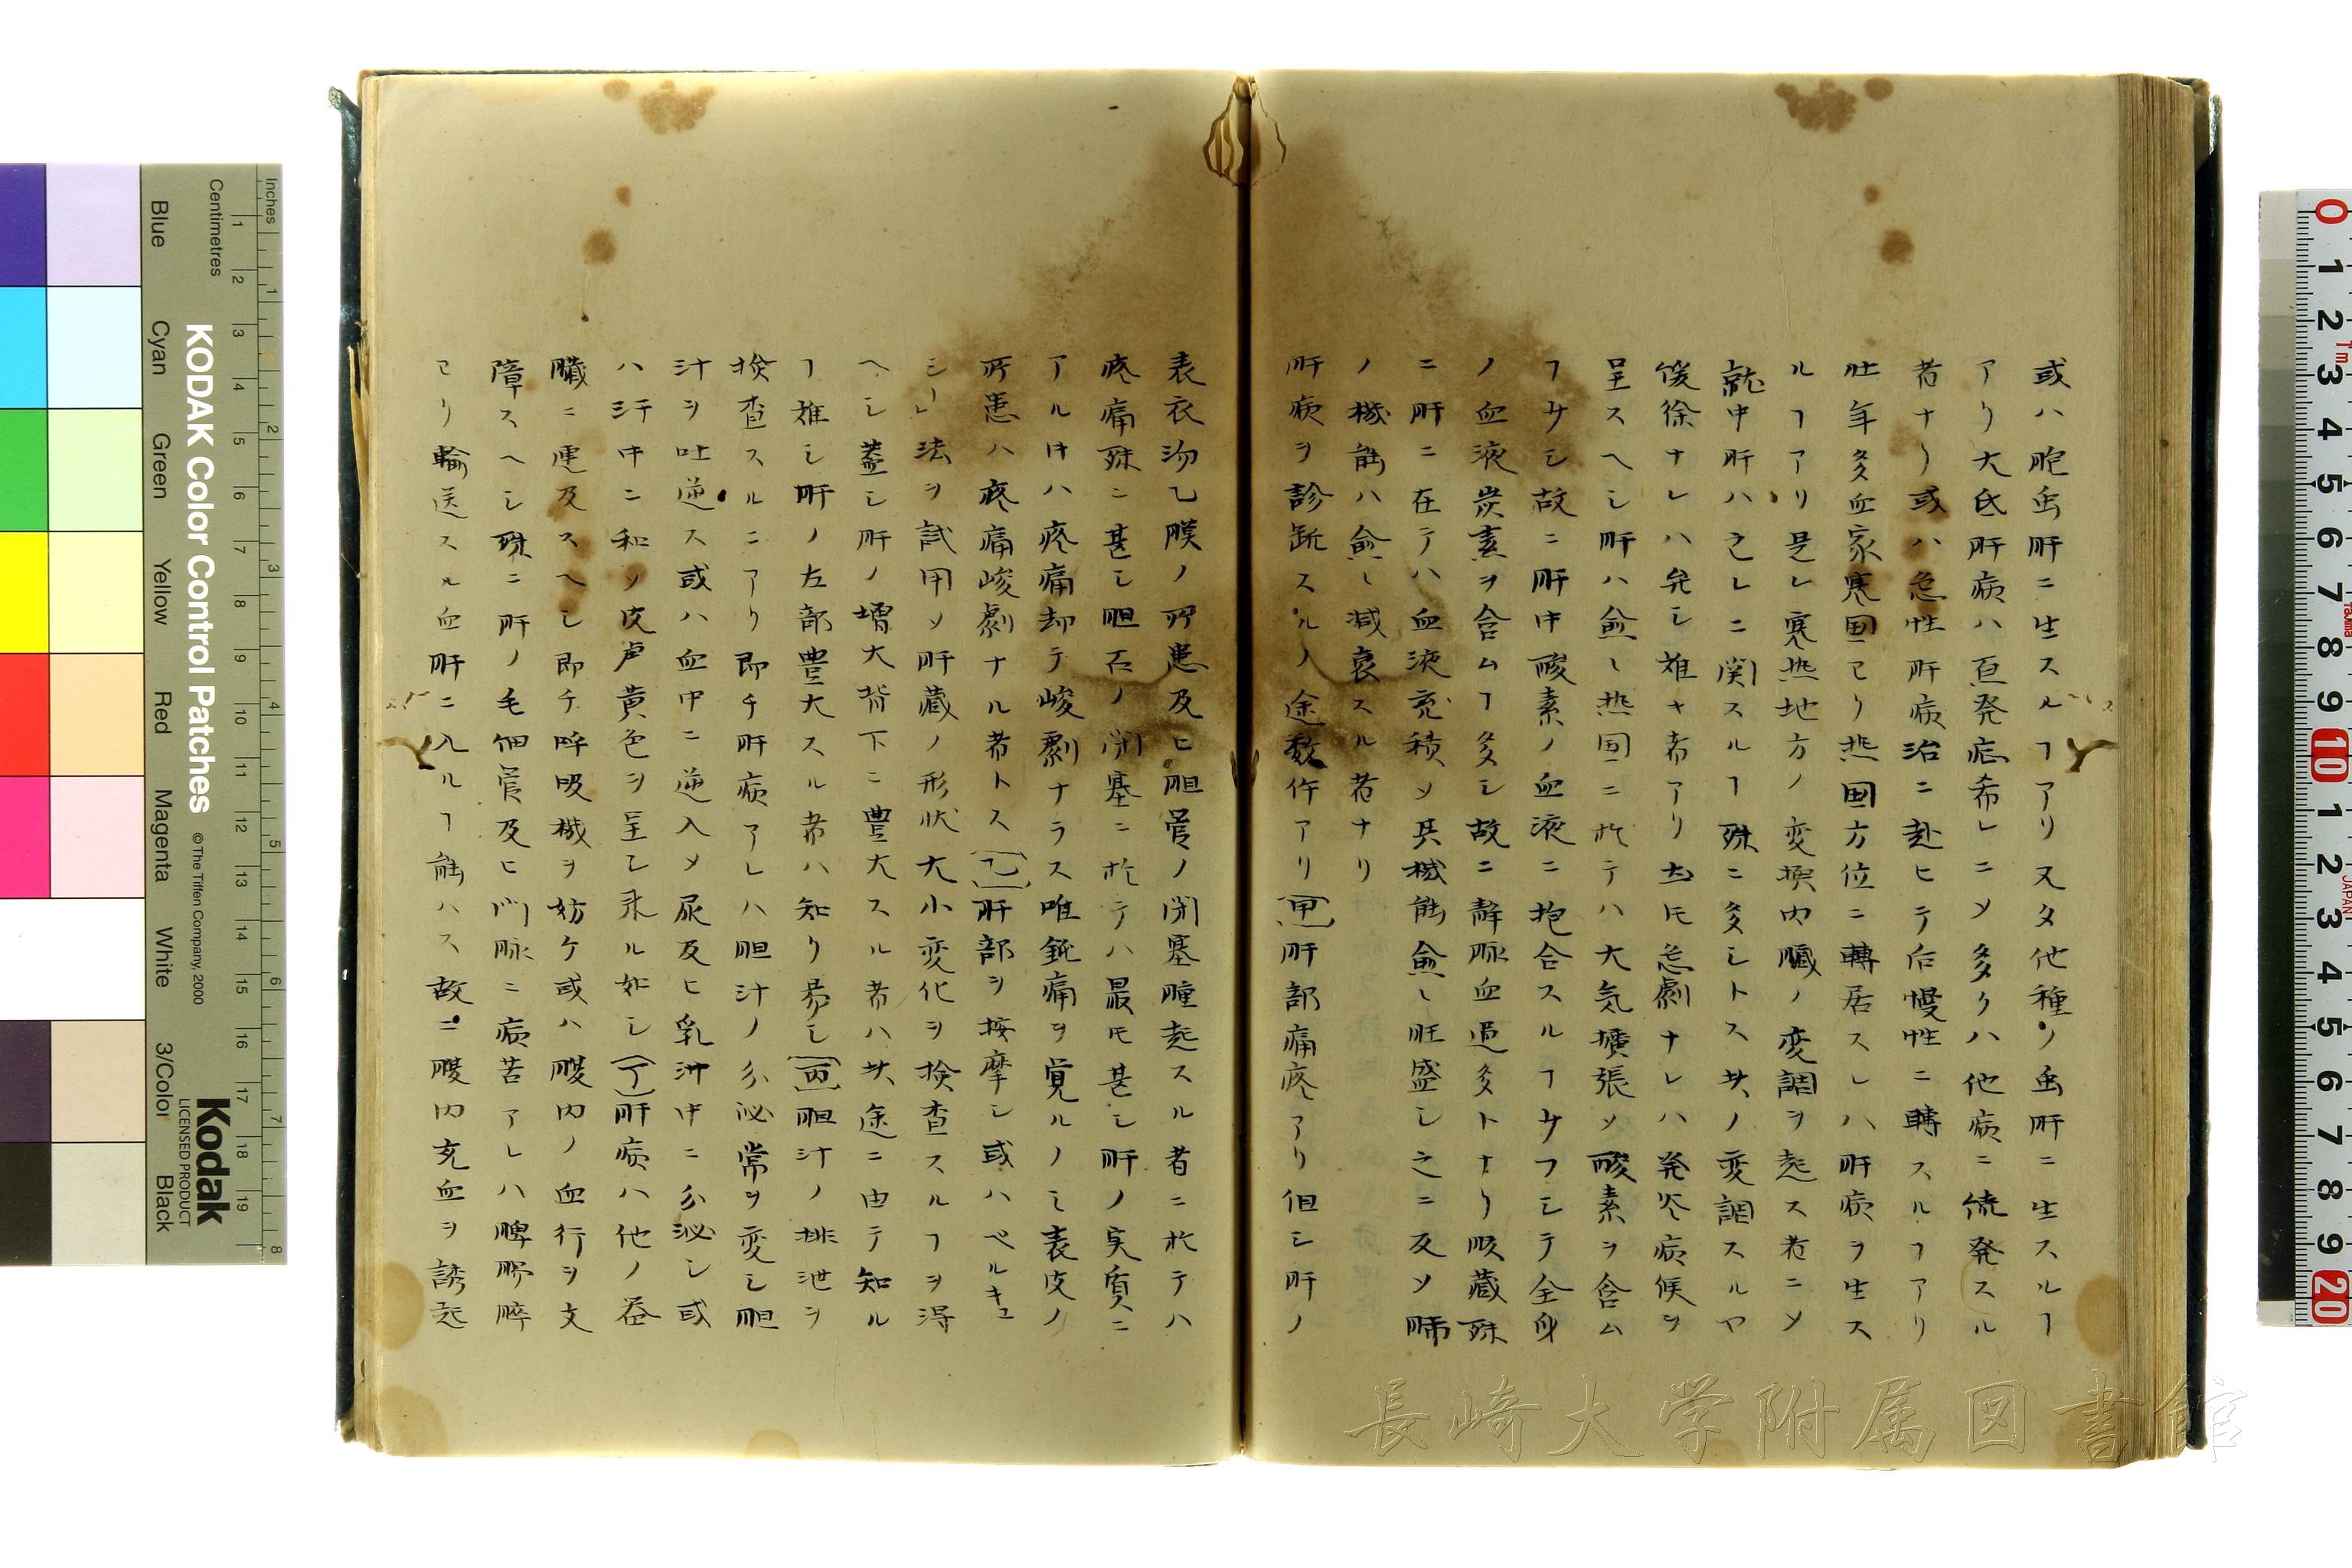 或ハ胞虫肝ニ生スルヿアリ又タ他種ノ虫肝ニ生スルヿ
アリ大氐肝病ハ直発症希レニソ多クハ他病ニ続発スル
者ナリ或ハ急性肝病治ニ赴ヒテ后慢性ニ轉スルヿアリ
壮年多血家寒国ヨリ热国方位ニ轉居スレハ肝病ヲ生ス
ルヿアリ是レ寒热地方ノ変換内臓ノ変調ヲ起ス者ニソ
就中肝ハ之レニ関スルヿ殊ニ多シトス其ノ変調スルヤ
緩徐ナレハ弁シ难キ者アリ尤モ急劇ナレハ発炎病候ヲ
呈スヘシ肝ハ愈〻热国ニ於テハ大気擴張ソ酸素ヲ含ム
ヿ少シ故ニ肝中酸素ノ血液ニ抱合スルヿ少フシテ全身
ノ血液炭素ヲ含ムヿ多シ故ニ静脉血過多トナリ腹蔵殊
ニ肝ニ在テハ血液充積ソ其機能愈〻旺盛シ之ニ反ソ肺
ノ機能ハ愈〻減衰スル者ナリ
肝病ヲ診断スルノ途数件アリ(甲)肝部痛疼アリ但シ肝ノ
表衣沕乙膜ノ所患及ヒ胆管ノ閉塞腫起スル者ニ於テハ
疼痛殊ニ甚シ胆石ノ閉塞ニ於テハ最モ甚シ肝ノ実質ニ
アル𪜈ハ疼痛却テ峻劇ナラス唯鈍痛ヲ覚ルノミ表皮ノ
所患ハ疼痛峻劇ナル者トス(乙)肝部ヲ按摩シ或ハペルキュ
シー法ヲ試用ソ肝蔵ノ形状大小変化ヲ検査スルヿヲ得
ヘシ蓋シ肝ノ増大背下ニ豊大スル者ハ其途ニ由テ知ル
ヿ难シ肝ノ左部豊大スル者ハ知リ易シ(丙)胆汁ノ排泄ヲ
検査スルニアリ即チ肝病アレハ胆汁ノ分泌常ヲ変シ胆
汁ヲ吐逆ス或ハ血中ニ逆入メ尿及ヒ乳汁中ニ分泌シ或
ハ汗中ニ和ソ皮膚黄色ヲ呈シ来ル如シ(丁)肝病ハ他ノ器
臓ニ連及スヘシ即チ呼吸機ヲ妨ケ或ハ腹内ノ血行ヲ支
障スヘシ殊ニ肝ノ毛細管及ヒ門脉ニ病苦アレハ脾膵
ヨリ輸送スル血肝ニ入ルヿ能ハス故ニ腹内充血ヲ誘起
KODAK Color Control Patches
© The Tiffen Company, 2000
Kodak
LICENSED PRODUCT
Inches
Centimetres
Blue
Cyan
Green
Yellow
Red
Magenta
White
3/Color
Black
JAPAN
長崎大学附属図書館